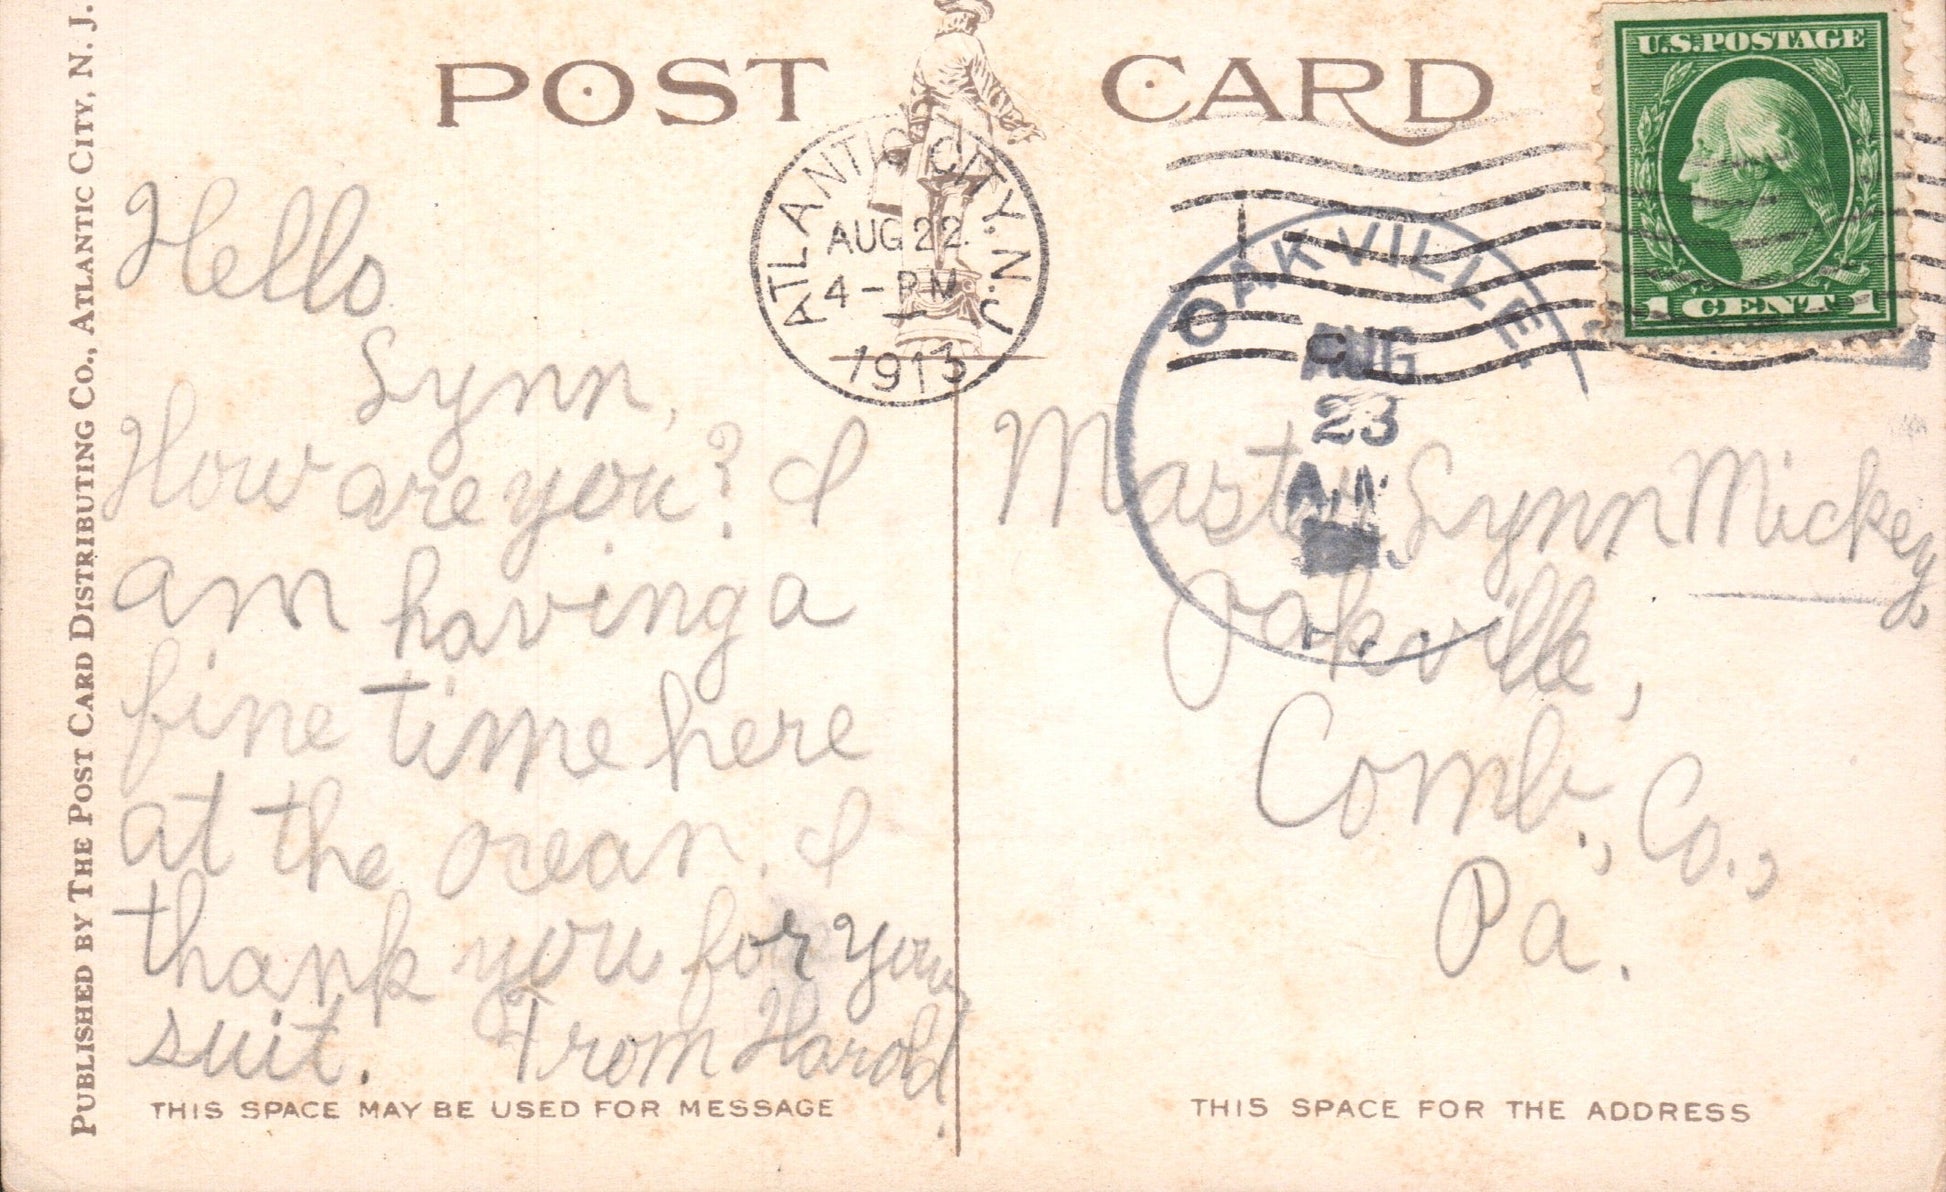 POST CARD
U.S. POSTAGE
1 CENT 1
ATLANTIC CITY, N.J.
AUG 22
4-PM
1913
OAKVILLE
AUG
23
A.M.
PUBLISHED BY THE POST CARD DISTRIBUTING CO., ATLANTIC CITY, N. J.
Hello
Lynn,
How are you? I
am having a
fine time here
at the ocean. I
thank you for your
suit. From Harold
THIS SPACE MAY BE USED FOR MESSAGE
Master Lynn Mickey,
Oakville,
Comb., Co.,
Pa.
THIS SPACE FOR THE ADDRESS